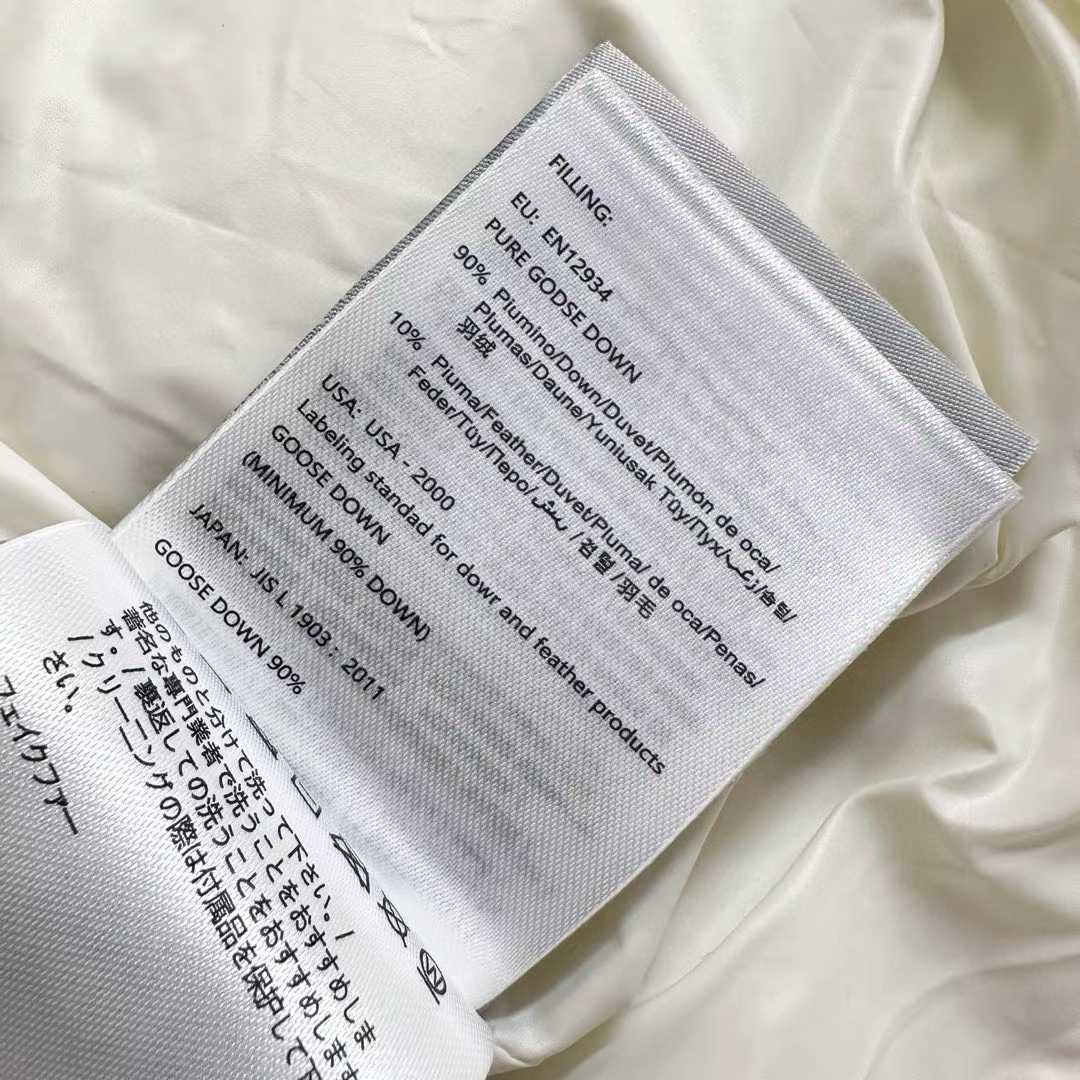 FILLING:
EU: EN12934
PURE GODSE DOWN
90% Plumino/Down/Duvet/Plumón de oca/
Plumas/Daune/Yunlusak Tüy/Пух/زغب/솜털/
羽绒
10% Pluma/Feather/Duvet/Pluma/ de oca/Penas/
Feder/Tüy/Перо/ريش/깃털/羽毛
USA: USA - 2000
Labeling standad for dowr and feather products
GOOSE DOWN
(MINIMUM 90% DOWN)
JAPAN: JIS L 1903 : 2011
GOOSE DOWN 90%
他のものと分けて洗って下さい。/
著名な専門業者で洗うことをおすすめしま
す。/ 裏返しての洗うことをおすすめします
/ クリーニングの際は付属品を保护して下
さい。
フェイクファー